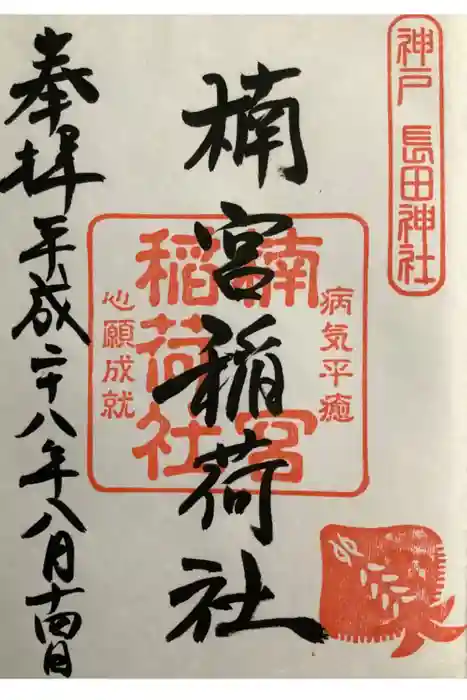 神戸 長田神社
病気平癒
楠宮稲荷社
心願成就
楠宮稲荷社
奉拝 平成二十八年八月十四日